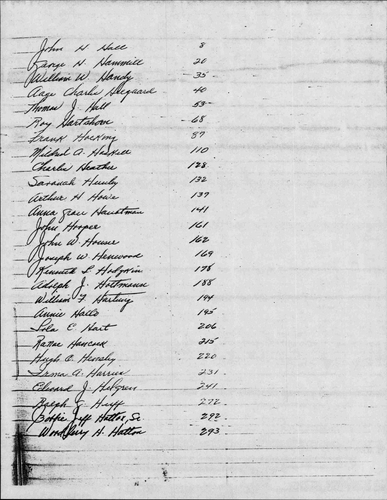 John H. Hill 8
George H. Hammill 20
William W. Handy 35
Aage Charlie 40
Thomas J. Hall 53
Roy Hartshorn 68
Frank Hocking 87
Mildred A. Haskell 110
Charlie Heather 128
Savanah 132
Arthur H. Howe 139
Anna Grace Hauntman 141
John Hooper 161
John W. Houser 162
Joseph W. Henwood 169
Kenneth L. Hodgkin 178
Adolph J. Holtmann 188
William F. Hartung 194
Annie 195
Lola C. Hart 206
Hancock 215
Hugh O. Hensley 220
A. Harris 231
Edward J. 241
Ralph C. Huff 272
Jeff Hatton, Sr. 292
H. Hatton 293